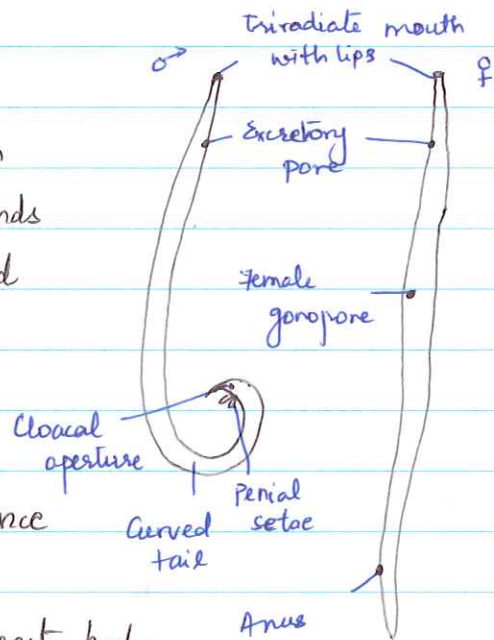 Triradiate mouth
with lips
♂
♀
Excretory
pore
nds
d
Female
gonopore
Cloacal
aperture
Penial
setae
nce
Curved
tail
Anus